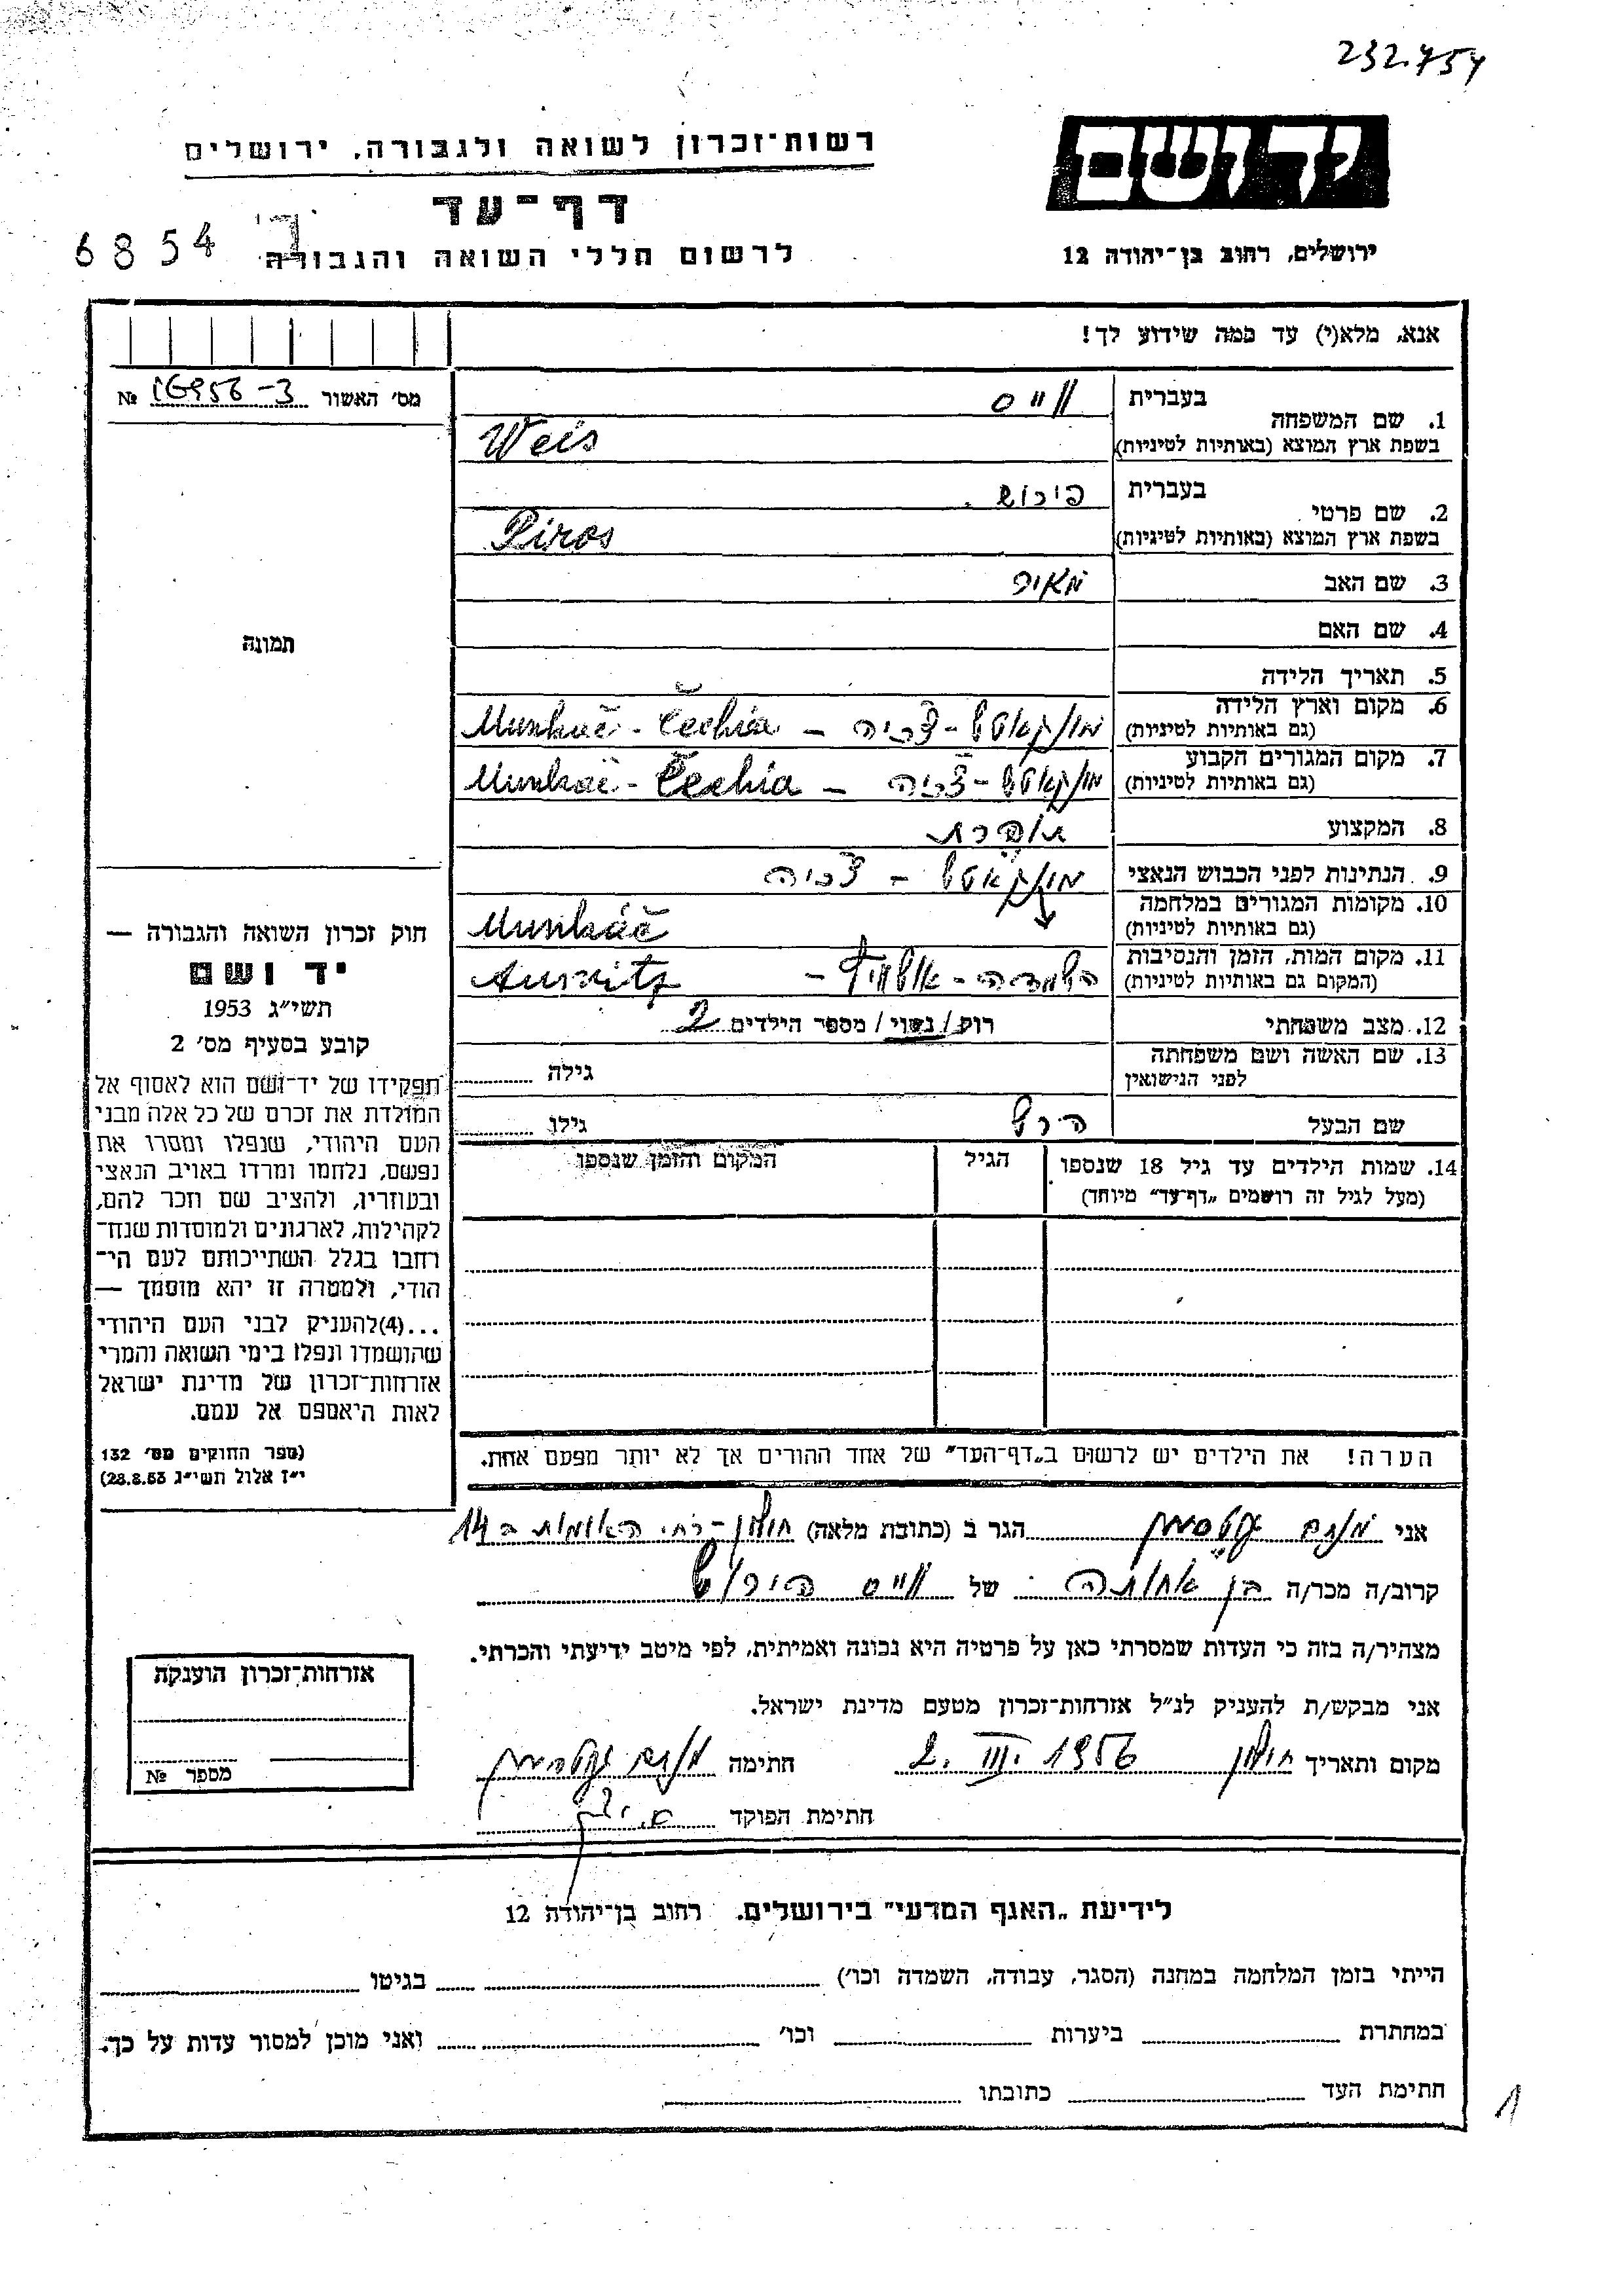 232.754
רשות־זכרון לשואה ולגבורה, ירושלים
יד ושם
דף־עד
ירושלים, רחוב בן־יהודה 12
לרשום חללי השואה והגבורה
6854
אנא, מלא(י) עד כמה שידוע לך!
מס' האשור 16956-3 №
1. שם המשפחה
בעברית וויס
בשפת ארץ המוצא (באותיות לטיניות) Weis
2. שם פרטי
בעברית פירוש
בשפת ארץ המוצא (באותיות לטיניות) Piros
3. שם האב מאיר
4. שם האם
5. תאריך הלידה
6. מקום וארץ הלידה
(גם באותיות לטיניות) מונקאטש-צכיה – Munkač - Čechia
7. מקום המגורים הקבוע
(גם באותיות לטיניות) מונקאטש-צכיה – Munkač - Čechia
8. המקצוע תופרת
9. הנתינות לפני הכבוש הנאצי מונקאטש – צכיה
10. מקומות המגורים במלחמה
(גם באותיות לטיניות) Munkáč
11. מקום המות, הזמן והנסיבות
(המקום גם באותיות לטיניות) השמדה - אושוויץ – Auswitz
12. מצב משפחתי רוק/נשוי/ מספר הילדים 2
13. שם האשה ושם משפחתה
לפני הנישואין גילה
שם הבעל הירש גילו
14. שמות הילדים עד גיל 18 שנספו
(מעל לגיל זה רושמים „דף־עד” מיוחד)
הגיל
המקום והזמן שנספו
הערה! את הילדים יש לרשום ב„דף־העד” של אחד ההורים אך לא יותר מפעם אחת.
תמונה
חוק זכרון השואה והגבורה —
יד ושם
תשי״ג 1953
קובע בסעיף מס' 2
תפקידו של יד־ושם הוא לאסוף אל
המולדת את זכרם של כל אלה מבני
העם היהודי, שנפלו ומסרו את
נפשם, נלחמו ומרדו באויב הנאצי
ובעוזריו, ולהציב שם וזכר להם,
לקהילות, לארגונים ולמוסדות שנח־
רחבו בגלל השתייכותם לעם הי־
הודי, ולמטרה זו יהא מוסמך —
...(4)להעניק לבני העם היהודי
שהושמדו ונפלו בימי השואה והמרי
אזרחות־זכרון של מדינת ישראל
לאות היאספם אל עמם.
(ספר החוקים מס' 132
י״ז אלול תשי״ג 28.8.53)
אני מנחם הגר ב (כתובת מלאה) חולון - רח' האומות ב 14
קרוב/ה מכר/ה בן אחותה של וויס פירוש
מצהיר/ה בזה כי העדות שמסרתי כאן על פרטיה היא נכונה ואמיתית, לפי מיטב ידיעתי והכרתי.
אני מבקש/ת להעניק לנ״ל אזרחות־זכרון מטעם מדינת ישראל.
מקום ותאריך חולון 2. III. 1956 חתימה מנחם
חתימת הפוקד
אזרחות־זכרון הוענקה
מספר №
לידיעת „האגף המדעי” בירושלים, רחוב בן־יהודה 12
הייתי בזמן המלחמה במחנה (הסגר, עבודה, השמדה וכו') בגיטו
במחתרת ביערות וכו' ואני מוכן למסור עדות על כך.
חתימת העד כתובתו
1